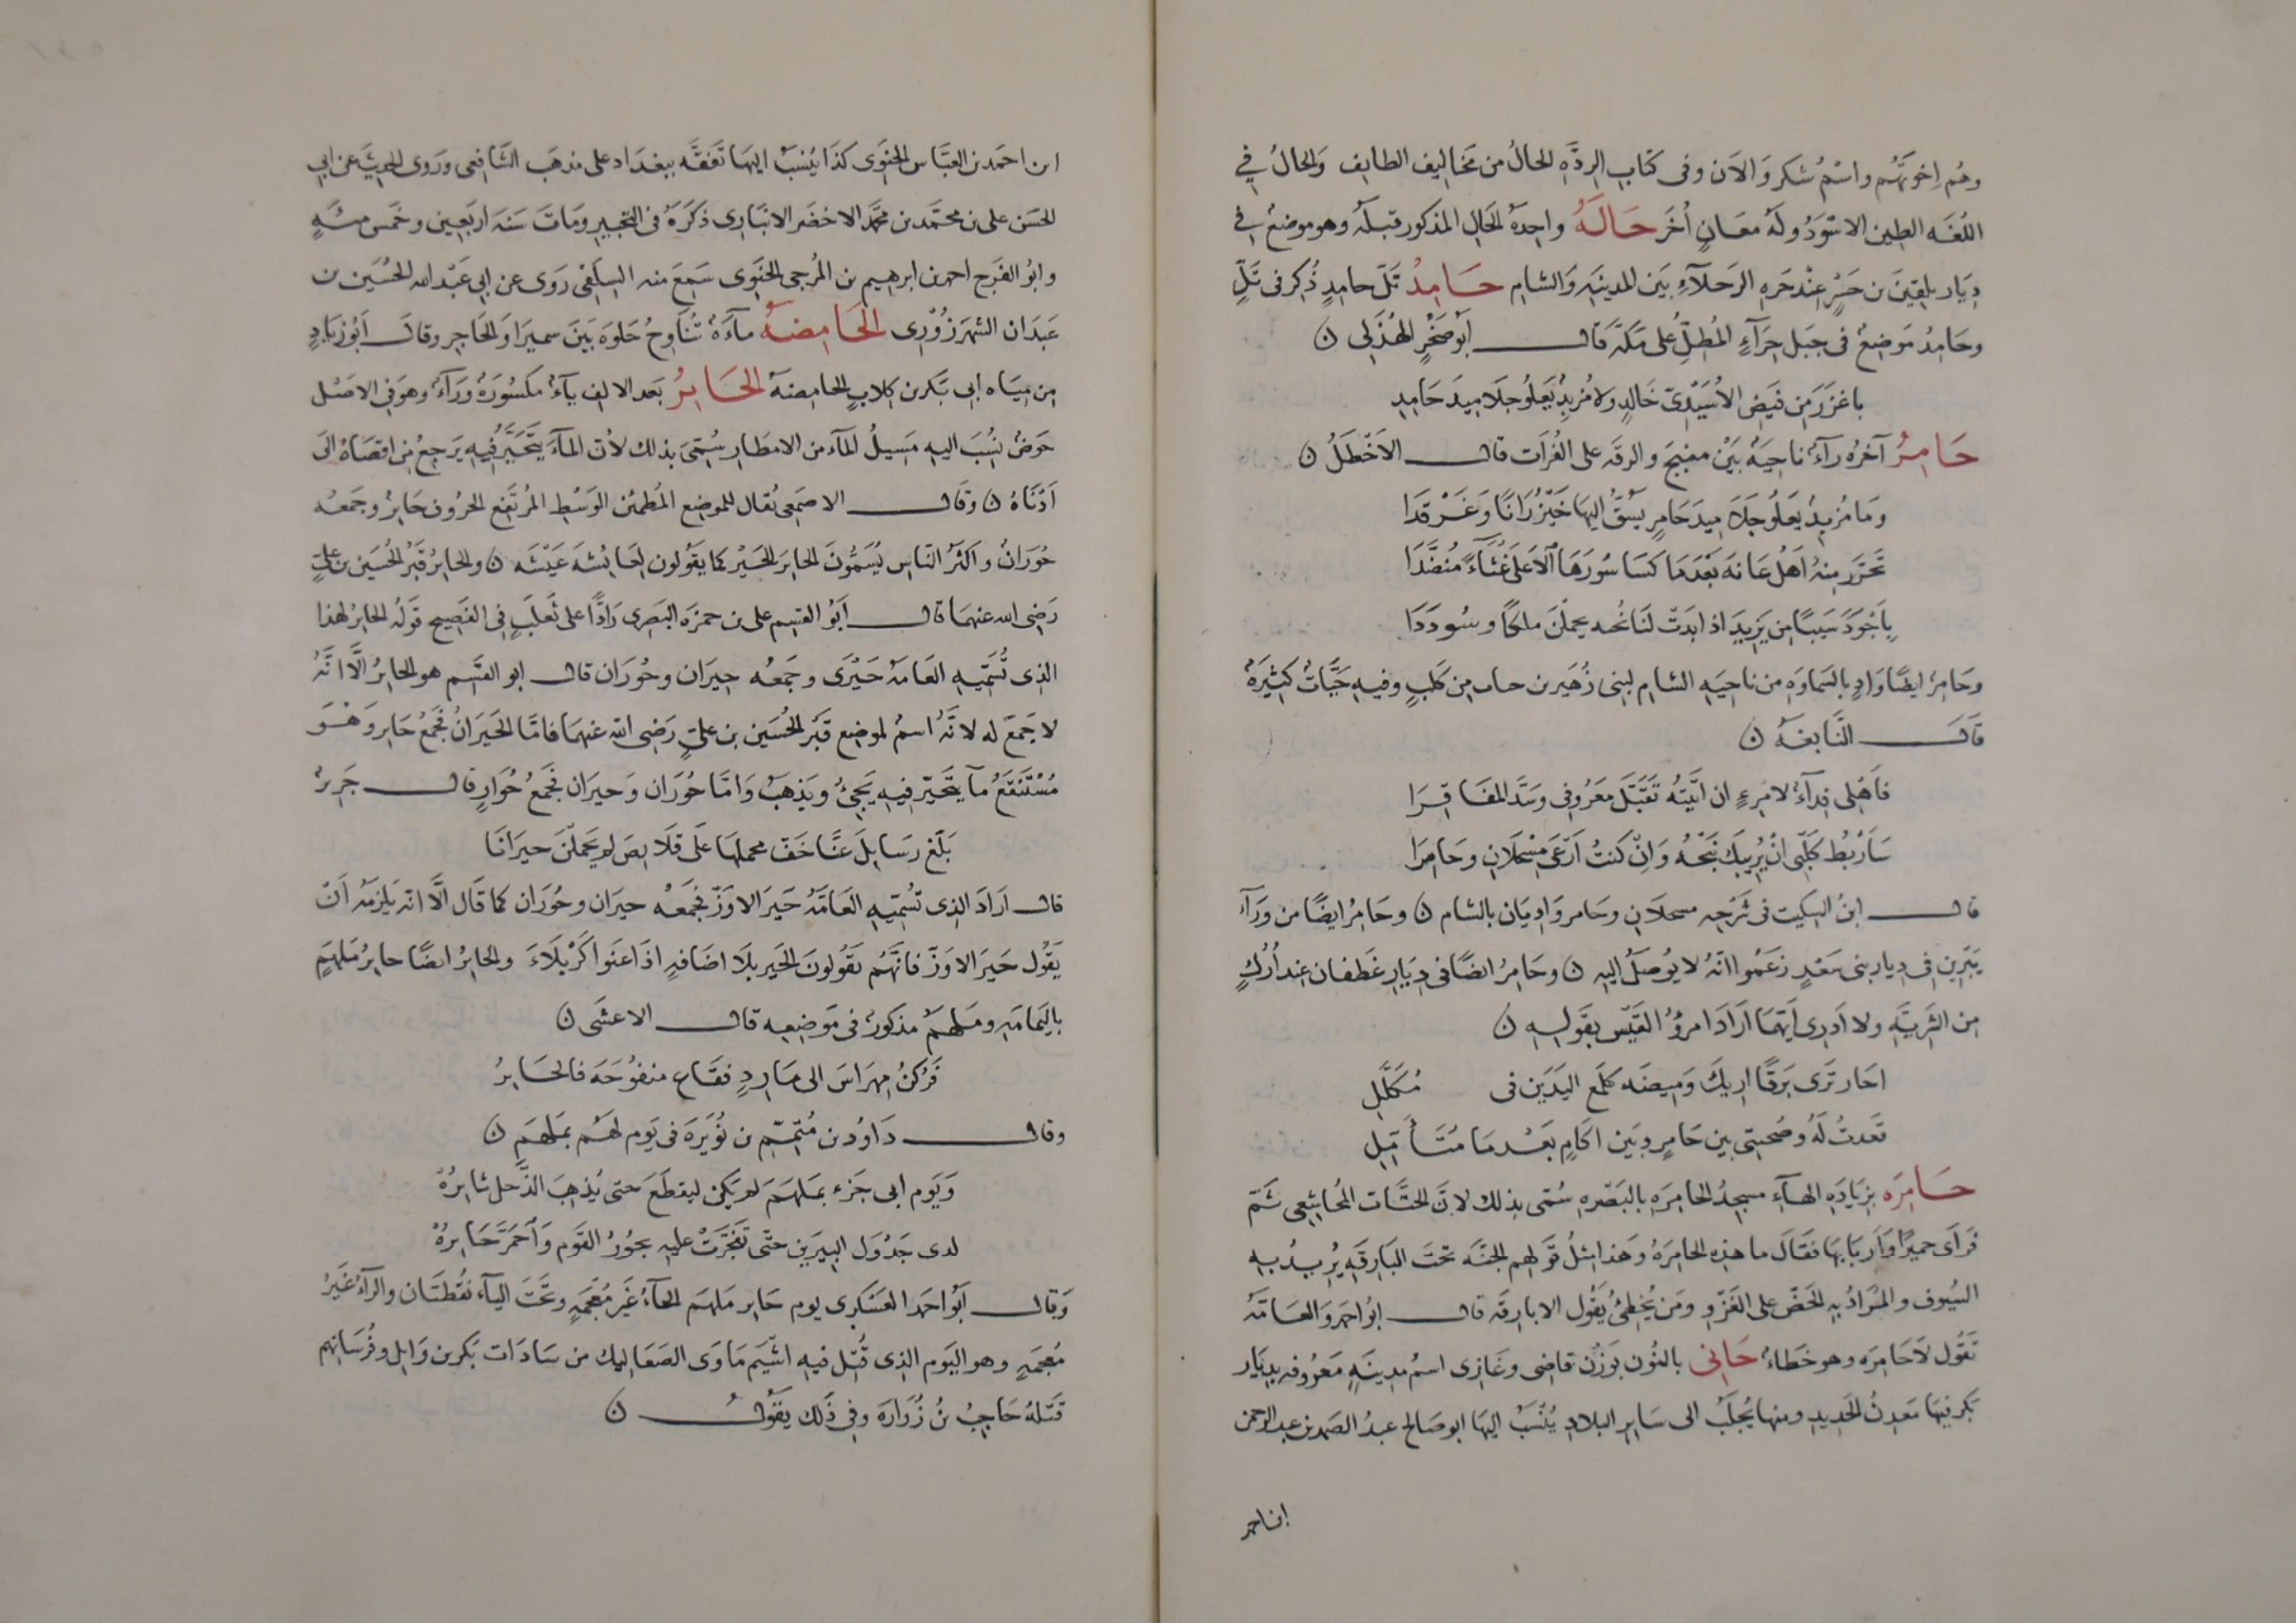 وهُم اِخوَتَهُم واسْمُ شكر وَالاَن وفى كتابِ الردَّهِ الحالُ من مَخاليف الطايف وَالحالُ في
اللُّغَه الطين الاسْوَدُ ولَهُ مَعَانٍ اُخَر حَالَهُ واحِدهُ الحَالِ المذكور قبلَهُ وهو موضعُ في
دِيَار بلقِينَ بن جَسْرٍ عندَ حَرهِ الرَجلآءِ بَين المدينَهِ وَالشام حَامِدُ تَلّ حامدٍ ذُكِر فى تَلٍّ
وحَامِدُ مَوَضِعُ فى جَبل حِرَآءٍ المُطِلِّ على مَكَهَ قَال اَبوُ صَخْرٍ الهُذَلِى ن
باغزَرَ مِن فَيَضِ الاُسَيِّدىّ خَالدٍ ولا مُزبِدُ يَعلُو جلَامِيدَ حَامِدِ
حَامِرُ آخرُهُ رآءُ ناحِيَهُ بَيْنَ منبِجَ والرقَه على الفُرَات قال الاَخْطَلُ ن
وَمَا مُزبِدُ يَعلُو جَلَامِيدَ حَامِرٍ يَشقُّ اليهَا خَيزُرَانًا وَغَرْقَدَا
تَحَرَّر مِنهُ اَهلُ عَانَهَ بَعْدَمَا كَسَا سُورَهَا الاَعلَى غُثَآءً مُنضَّدَا
بِاَجْوَدَ سَيبًا مِن يَزِيدَ اذا بَدَت لَنَا نُحه يحملْنَ ملكًا وسُودَدَا
وحَامِرُ ايضًا وَادٍ بالسَماوَهِ من ناحِيَهِ الشام لبنى زُهَير بن حناب مِن كَلبٍ وفيهِ حَيَّاتُ كثِيَرَهُ
قَال النَّابغَهُ ن
فَاَهْلى فِدَآءُ لامرِءٍ ان اتيتُه تَقَبَّلَ مَعرُوفى وسَدَّ المفَاقِرَا
سَاَرْبُط كَلبِى اَنْ يُرِيبكَ نَبْحُهُ وَانْ كنتُ اَرْعَى مِسْحلَانِ وحَامِرَا
قال ابنُ السِكيت فى شَرْحِه مسحلَانِ وحَامر وَادِيَان بالشام ن وحَامِرُ ايضًا من وَرَآءِ
يَبْرِينِ فى دِيار بنى سَعْدٍ زعَمُوا انّهُ لا يُوصَلُ اليهِ ن وحَامِرُ ايضًا فى دِيَارِ غَطفان عِند اُرُلٍ
مِن الشَرِبَّهِ ولا اَدرِى اَيَّهمَا اَرَادَ امرؤُ القَيْس بقَولِهِ ن
احَار تَرَى بَرقًا اريكَ وَمِيضَه كلَمْعِ اليَدَين فى مُكَلَّلِ
قَعدتُ لَهُ وصُحبَتِى بين حَامِرٍ وبَين اكَامٍ بَعْدمَا مُتَأَمَّلِ
حَامِرَه بزِيَادَهِ الهآءِ مسجدُ الحامِرَهِ بالبَصْرهِ سُمّى بذلك لانَّ الحتَّات المُجَاشِعى ثَمّ
فَرَاَى حميرًا وَاَربَابهَا فقَالَ ما هذِه الحامِرَهُ وَهَذا مثلُ قَولهم الجَنَه تحتَ البَارقَهِ يُرِيدُ بهِ
السُيُوف والمُرَادُ بِهِ الحَضّ على الغَزْوِ ومَن يُخطِئُ يَقُول الابارقَه قال ابُو احمَد وَالعَامَّهُ
تَقُول لاَحَامِرَه وهو خَطَاءُ حَانِى بالنُون بَوزَن قاضى وغَازِى اسمُ مدينَهٍ مَعرُوفه بدِيَار
بَكر فيهَا مَعدِنُ الحَدِيدِ ومنها يُجلَبُ الى سَايِرِ البِلَادِ يُنْسَبُ اليهَا ابو صَالح عبدُ الصَمد بن عبد الرحمن
ابن احمد
ابن احمَد بن العبَّاس الحنَوِى كذَا يُنسَبُ اليهَا تفقَّه ببغدَاد على مذهَب الشَّافِعى ورَوى الحدِيثَ عن ابى
الحَسَن على بن محمَّد بن محمَّد الاخضَر الانبَارِى ذكَرَهُ فى التحبيرِ ومَاتَ سَنَهَ اربَعِين وخَمس مئَهٍ
وابُو الفَرَج احمد بن ابرهيم بن المُرجى الحنَوِى سَمِعَ منه السِلَفى رَوَى عن ابى عَبْد الله الحُسَين بن
عَبدَان الشهرَزُوْرِى الحَامِضَهُ مآءَهُ تُنَاوِحُ حَلوَه بَيَن سميرَا وَالحَاجِرِ وقالَ اَبُوزيَادٍ
مِن مِيَاه ابى بَكر بن كِلابٍ الحامِضَهُ الحَايِرُ بَعد الالِف يآءُ مَكسُورَهُ ورَآءُ وهوَ فى الاصْل
حَوضُ نُسِبَ اليهِ مَسِيلُ المآءِ من الامطَارِ سُمِّىَ بذلك لاَن المآءَ يَتَحَيَّرُ فيهِ يَرجِعُ مِن اقصَاهُ الىَ
اَدْنَاهُ ن وقَال الاصمَعِى يُقال للموضِعِ المُطمئِن الوَسْطِ المُرتَفِعِ الحُرُوف حَايِرُ وجَمعُه
حُوَرانُ واَكثَرُ النّاسِ يُسَمُّونَ الحَايرَ الحَيْرَ كما يقَولُون لِعَائِشَه عَيشَه ن والحَايرُ قَبْرُ الحُسَين بن علىٍّ
رَضى الله عنهمَا قال اَبُو القسِم على بن حمزَه البصَرِى رَادًّا على ثَعلَبٍ فى الفَصِيح قَولُه الحَايرُ لهذا
الذِى تُسَمِّيهِ العَامهُ حَيْرَى وجَمعُه حِيَرَان وحُوَرَان قال ابو القسَم هو الحَايرُ الَّا انَّهُ
لا جَمعَ له لانَّهُ اسمُ لموضِعِ قَبْرِ الحُسَين بن علىٍّ رَضى اللّه عنهمَا فامّا الحيَرَانُ فجَمعُ حَاير وَهْوَ
مُسْتَنقَعُ مآ يتَحَيّر فيهِ يَجِىُ ويَذهَبُ وَامّا حُوَرَان وَحِيَران فجَمعُ حُوَارٍ قال جَرِيرُ
بَلّغ رسَايِلَ عَنَّا خَفّ محملهَا على قلَايِصَ لم يَحمِلْنَ حيرَانَا
قال اَرَادَ الذِى تُسمِّيهِ العَامّهُ حَيَر الاوَزّ فجَمَعهُ حيَران وحُوَران كما قَال الَّا انّهُ يَلزمَهُ اَنّ
يَقُول حَيَر الاوَزّ فانَّهُم يقَولُونَ الحَير بلَا اضَافهٍ اذَا عَنَوا كَرْبلَاءَ والحَايرُ ايضًا حايرُ مَلهَمٍ
باليَمامَهِ ومَلهَمُ مذكورُ فى مَوَضعِه قال الاعشَى ن
فَرُكنُ مِهرَاسَ الى مَارِدٍ فقَاع منفُوحَه فالحَايرُ
وقال دَاوُد بن مُتَمِّم بن نُوَيرَه فى يَوم لهُم بمَلهَم ن
وَيَوم ابى جَزءٍ بملهَمَ لم يَكن ليقطَعَ حتى يُذهِبَ الذَّحل ثايرُهْ
لدى جَدْوَل البيرَينِ حتّى تفجَّرَتْ عليهِ بحُورُ القَوم وَاَحمَرَّ حَايرُهْ
وَقال اَبُو احمَد العَسْكرِى يوم حَايِر مَلهَم الحآءُ غَير مُعجَمهٍ وتحَتَ اليآء نقُطتَان والرآءُ غَيَرُ
مُعجَمهٍ وهو اليَوم الذِى قُتِل فيهِ اشيَم مَاوَى الصَعَاليك من سَادَات بَكر بن وَايل وفُرسَانهِم
قتَلهُ حَاجِبُ بنُ زُرَارَه وفى ذَلك يقُول ن